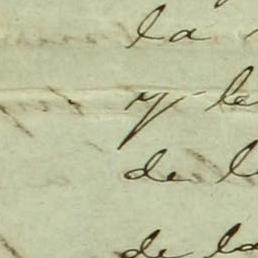 la
y le
de l
de la